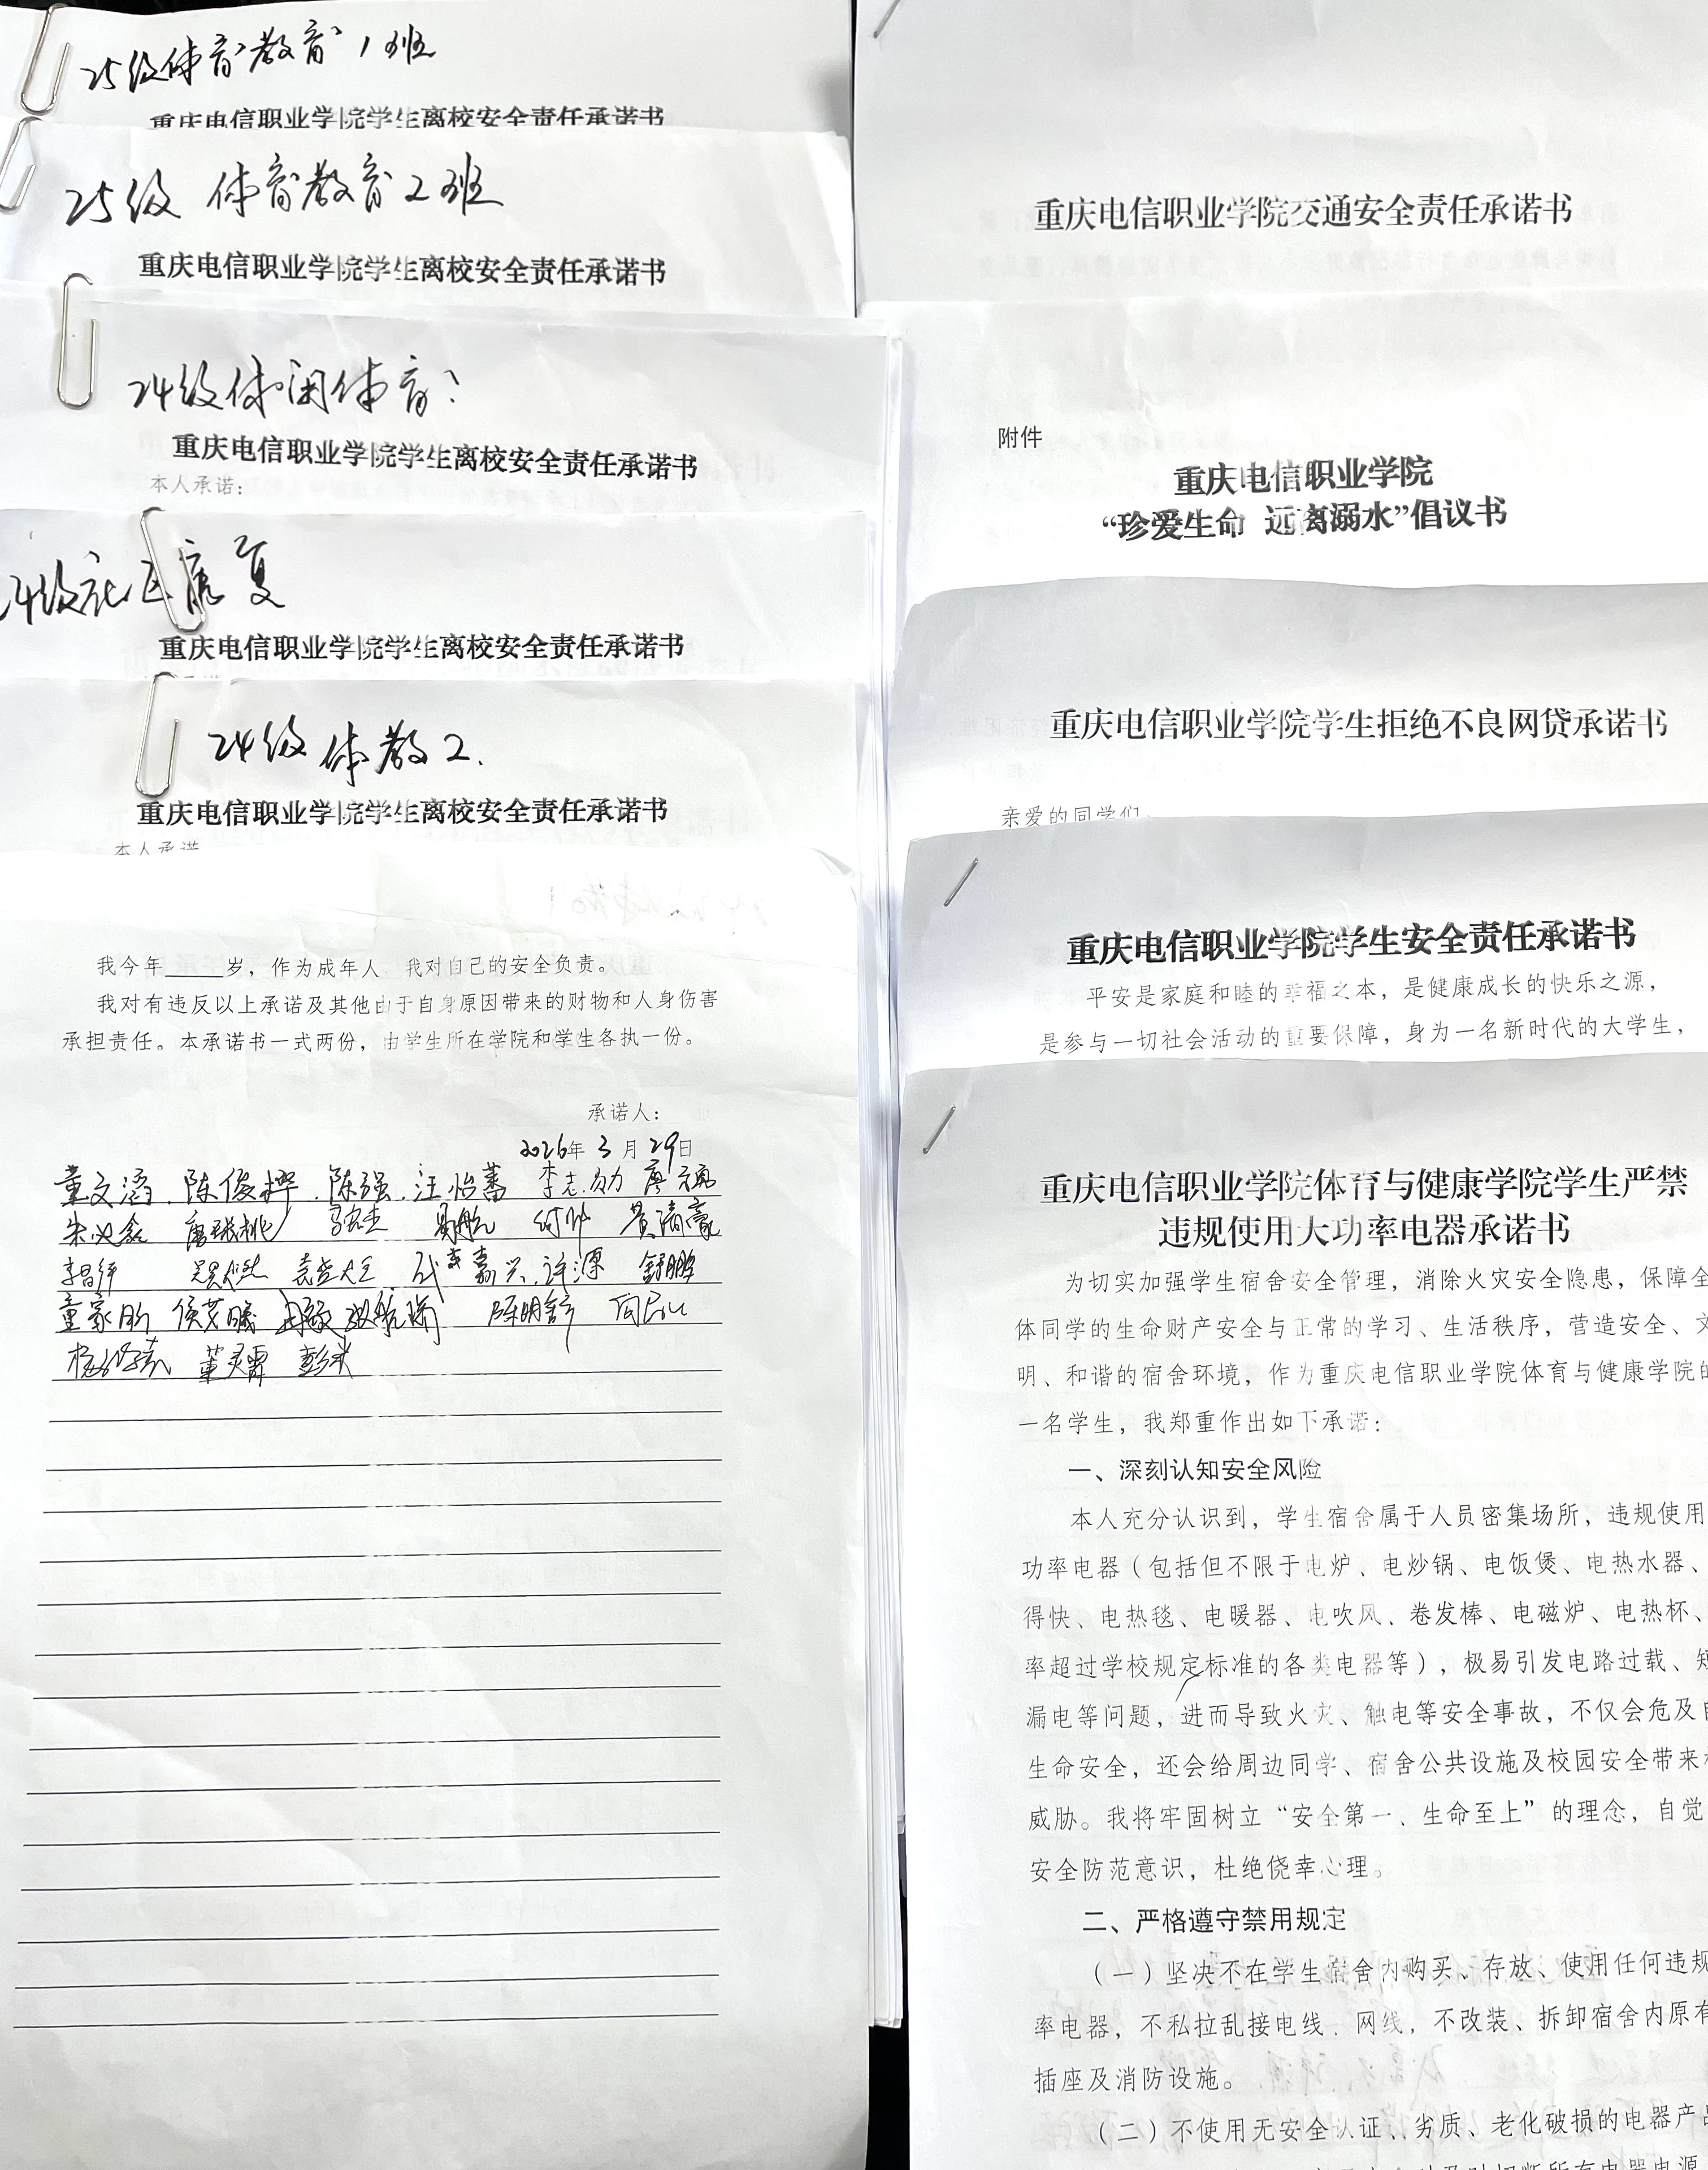 25级体育教育1班
重庆电信职业学院学生离校安全责任承诺书
25级 体育教育2班
重庆电信职业学院学生离校安全责任承诺书
24级休闲体育
重庆电信职业学院学生离校安全责任承诺书
本人承诺:
24级社区康复
重庆电信职业学院学生离校安全责任承诺书
24级 体教2.
重庆电信职业学院学生离校安全责任承诺书
本人承诺
我今年____岁，作为成年人，我对自己的安全负责。
我对有违反以上承诺及其他由于自身原因带来的财物和人身伤害
承担责任。本承诺书一式两份，由学生所在学院和学生各执一份。
承诺人：
2026年3月29日
童文滔 陈俊桦 陈强 汪怡蕃 李志 廖
朱 唐 何 黄清豪
李昌 嘉兴 许源 舒鹏
童家 侯 陈明 向
杨 董灵霄 彭
重庆电信职业学院交通安全责任承诺书
附件
重庆电信职业学院
“珍爱生命 远离溺水”倡议书
重庆电信职业学院学生拒绝不良网贷承诺书
亲爱的同学们:
重庆电信职业学院学生安全责任承诺书
平安是家庭和睦的幸福之本，是健康成长的快乐之源，
是参与一切社会活动的重要保障，身为一名新时代的大学生，
重庆电信职业学院体育与健康学院学生严禁
违规使用大功率电器承诺书
为切实加强学生宿舍安全管理，消除火灾安全隐患，保障全
体同学的生命财产安全与正常的学习、生活秩序，营造安全、文
明、和谐的宿舍环境，作为重庆电信职业学院体育与健康学院的
一名学生，我郑重作出如下承诺：
一、深刻认知安全风险
本人充分认识到，学生宿舍属于人员密集场所，违规使用
功率电器（包括但不限于电炉、电炒锅、电饭煲、电热水器、
得快、电热毯、电暖器、电吹风、卷发棒、电磁炉、电热杯、
率超过学校规定标准的各类电器等），极易引发电路过载、短
漏电等问题，进而导致火灾、触电等安全事故，不仅会危及自
生命安全，还会给周边同学、宿舍公共设施及校园安全带来
威胁。我将牢固树立“安全第一、生命至上”的理念，自觉
安全防范意识，杜绝侥幸心理。
二、严格遵守禁用规定
（一）坚决不在学生宿舍内购买、存放、使用任何违规
率电器，不私拉乱接电线、网线，不改装、拆卸宿舍内原有
插座及消防设施。
（二）不使用无安全认证、劣质、老化破损的电器产品